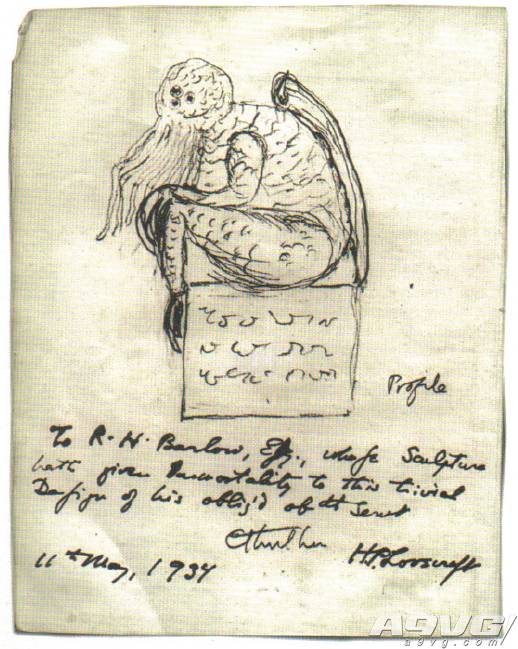 Profile
To R. H. Barlow, Esq., whose Sculpture
hath given Immortality to this trivial
Design of his oblig'd obt Servt
Cthulhu
H.P. Lovecraft
11th May, 1934
A9VG
a9vg.com